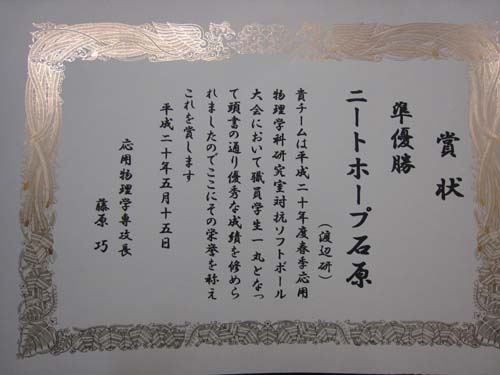 賞状
準優勝
ニートホープ石原
（渡辺研）
貴チームは平成二十年度春季応用
物理学科研究室対抗ソフトボール
大会において職員学生一丸となっ
て頭書の通り優秀な成績を修めら
れましたのでここにその栄誉を称え
これを賞します
平成二十年五月十五日
応用物理学専攻長
藤原 巧